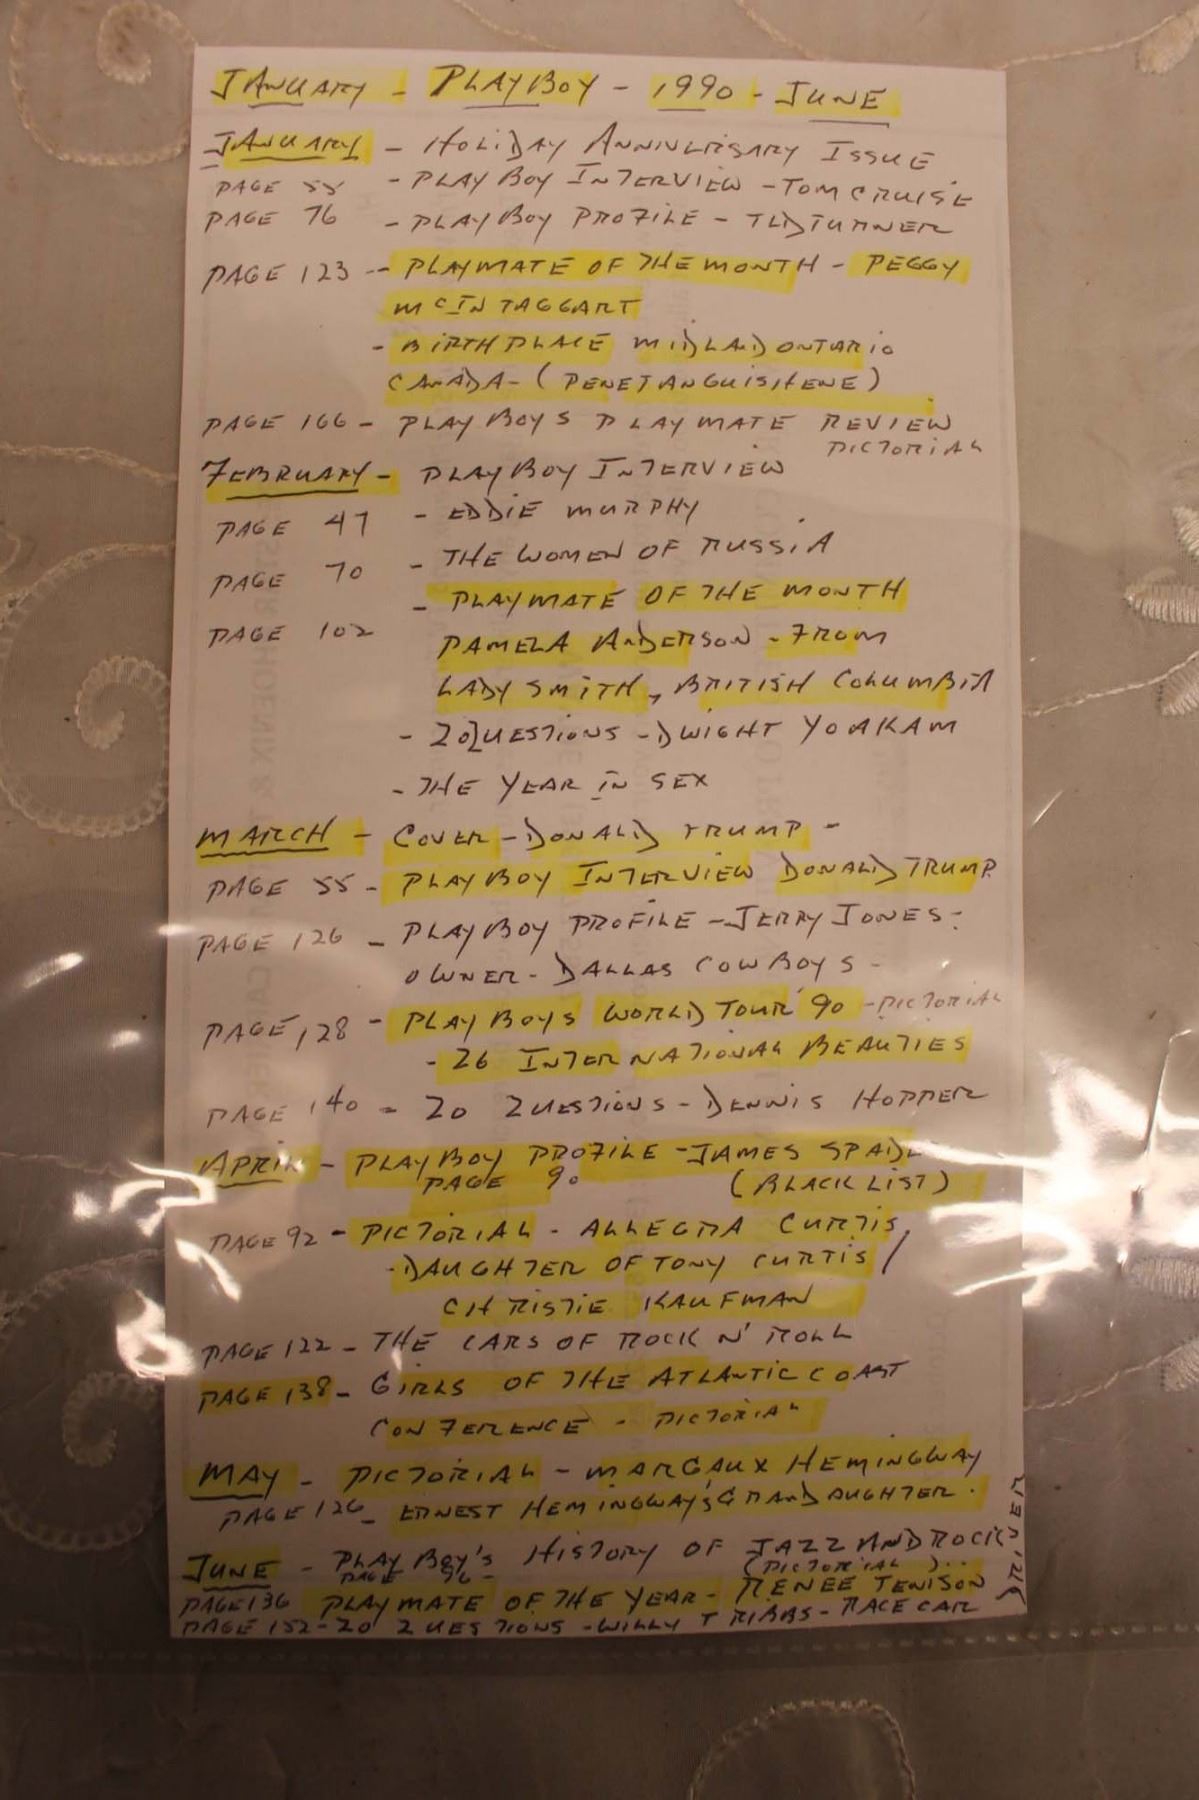 JANUARY - PLAYBOY - 1990 - JUNE
JANUARY - HOLIDAY ANNIVERSARY ISSUE
PAGE 55 - PLAYBOY INTERVIEW - TOM CRUISE
PAGE 76 - PLAYBOY PROFILE - TED TURNER
PAGE 123 -- PLAYMATE OF THE MONTH - PEGGY
MCINTAGGART
- BIRTHPLACE MIDLAND ONTARIO
CANADA - (PENETANGUISHENE)
PAGE 166 - PLAYBOYS PLAYMATE REVIEW
PICTORIAL
FEBRUARY - PLAYBOY INTERVIEW
PAGE 47 - EDDIE MURPHY
PAGE 70 - THE WOMEN OF RUSSIA
PAGE 102 - PLAYMATE OF THE MONTH
PAMELA ANDERSON - FROM
LADYSMITH, BRITISH COLUMBIA
- 20 QUESTIONS - DWIGHT YOAKAM
- THE YEAR IN SEX
MARCH - COVER - DONALD TRUMP -
PAGE 55 - PLAYBOY INTERVIEW DONALD TRUMP
PAGE 126 - PLAYBOY PROFILE - JERRY JONES -
OWNER - DALLAS COWBOYS -
PAGE 128 - PLAYBOYS WORLD TOUR '90 - PICTORIAL
- 26 INTERNATIONAL BEAUTIES
PAGE 140 - 20 QUESTIONS - DENNIS HOPPER
APRIL - PLAYBOY PROFILE - JAMES SPADE
PAGE 90 (BLACK LIST)
PAGE 92 - PICTORIAL - ALLEGRA CURTIS,
- DAUGHTER OF TONY CURTIS /
CHRISTIE KAUFMAN
PAGE 122 - THE CARS OF ROCK N' ROLL
PAGE 138 - GIRLS OF THE ATLANTIC COAST
CONFERENCE - PICTORIAL
MAY - PICTORIAL - MARGAUX HEMINGWAY
PAGE 126 - ERNEST HEMINGWAY'S GRANDAUGHTER.
JUNE - PLAYBOY'S HISTORY OF JAZZ AND ROCK
PAGE 96 - (PICTORIAL)..
PAGE 136 PLAYMATE OF THE YEAR - RENEE TENISON
PAGE 152 - 20 QUESTIONS - WILLY T RIBBS - RACE CAR
DRIVER